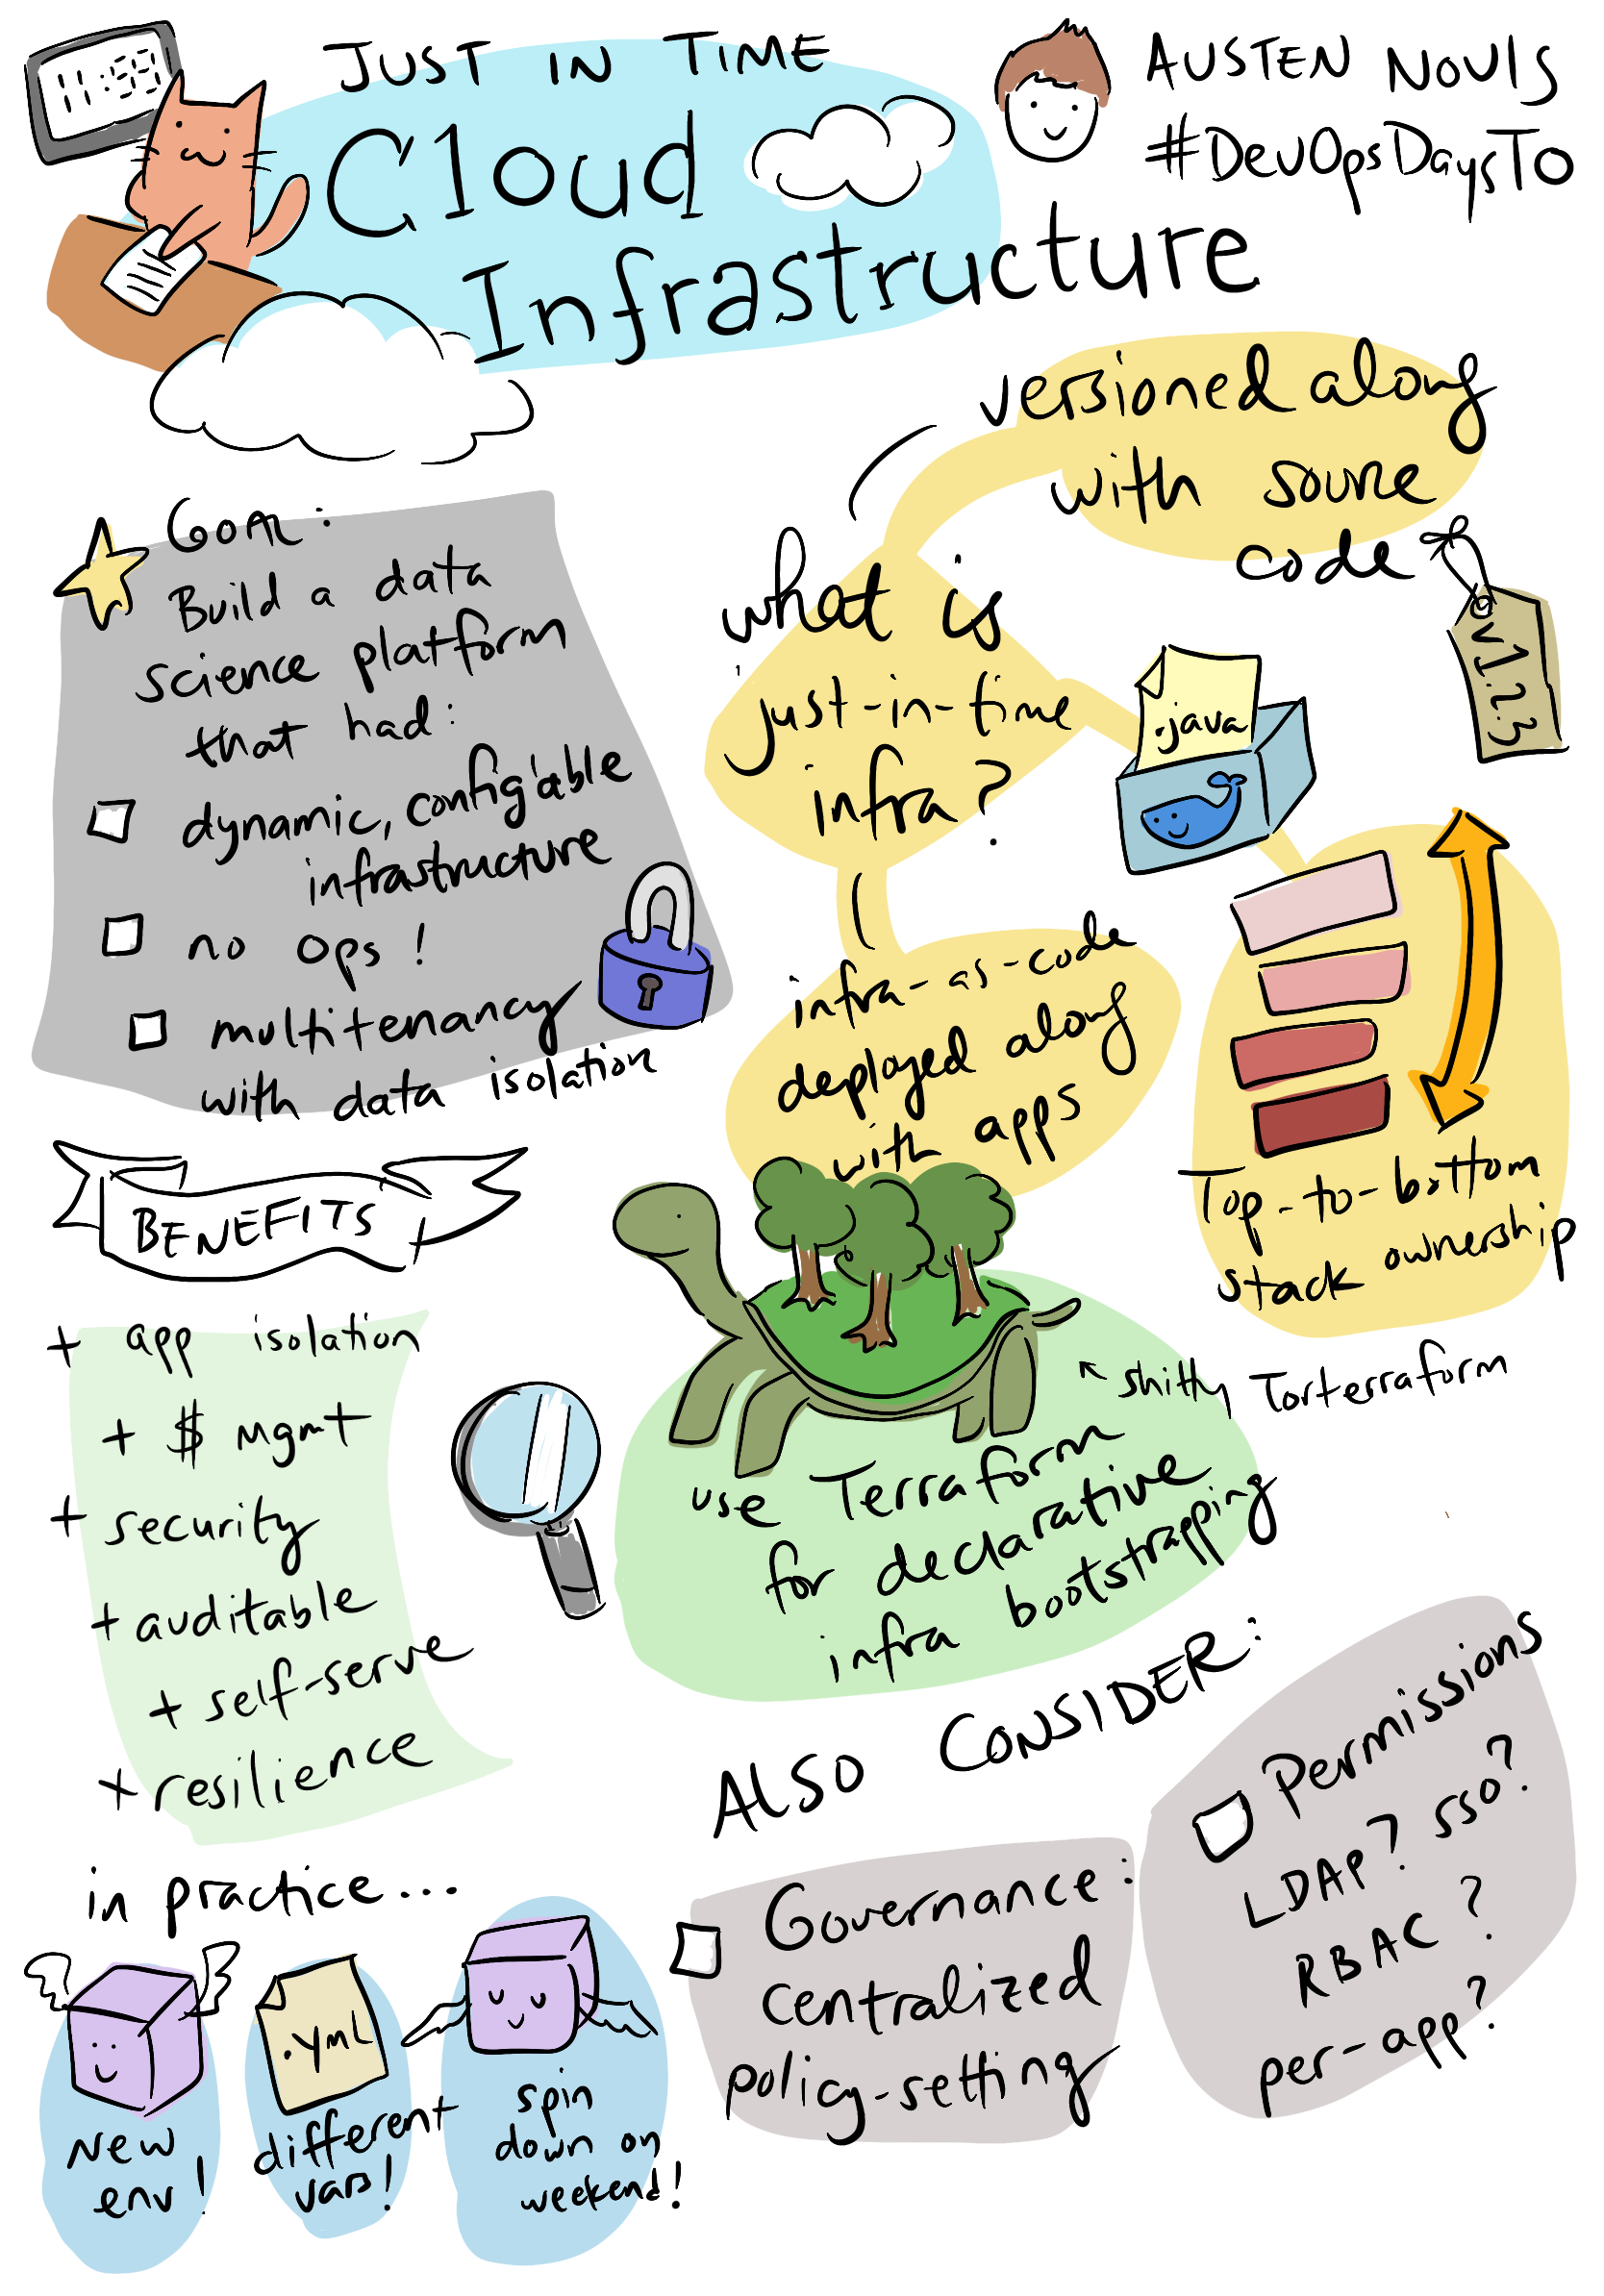 11:59
JUST IN TIME
Cloud
Infrastructure
AUSTEN NOVIS
#DevOpsDaysTO
GOAL:
Build a data
science platform
that had:
dynamic, config'able
infrastructure
no ops!
multitenancy
with data isolation
what is
just-in-time
infra?
versioned along
with source
code
v1.2.3
.java
infra-as-code
deployed along
with apps
Top-to-bottom
stack ownership
BENEFITS
+ app isolation
+ $ mgmt
+ security
+ auditable
+ self-serve
+ resilience
shitty Torterraform
use Terraform
for declarative
infra bootstrapping
in practice...
new
env!
.yml
different
vars!
spin
down on
weekend!
ALSO CONSIDER:
Governance:
centralized
policy-setting
Permissions
LDAP? SSO?
RBAC?
per-app?